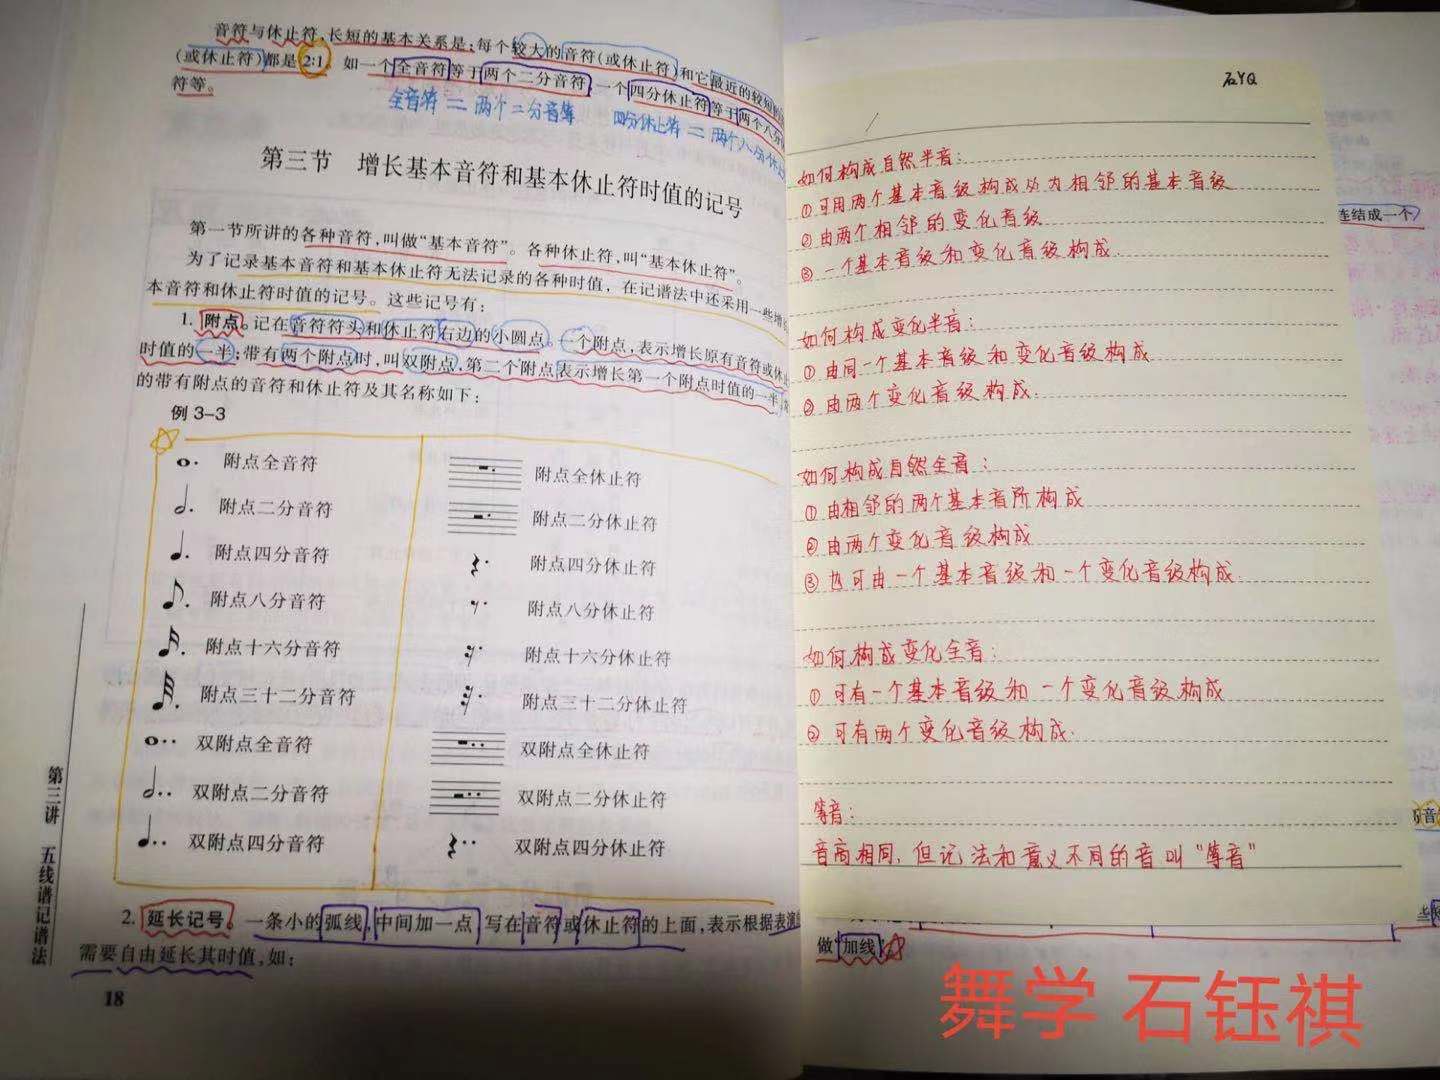 音符与休止符,长短的基本关系是:每个较大的音符(或休止符)和它最近的较短的
(或休止符)都是2:1。如一个全音符等于两个二分音符,一个四分休止符等于两个八分
符等。
全音符 = 两个二分音符 四分休止符 = 两个八分休止
第三节 增长基本音符和基本休止符时值的记号
第一节所讲的各种音符,叫做“基本音符”。各种休止符,叫“基本休止符”。
为了记录基本音符和基本休止符无法记录的各种时值,在记谱法中还采用一些增长
本音符和休止符时值的记号。这些记号有:
1. 附点。记在音符符头和休止符右边的小圆点。一个附点,表示增长原有音符或休止
时值的一半;带有两个附点时,叫双附点,第二个附点表示增长第一个附点时值的一半,
的带有附点的音符和休止符及其名称如下:
例 3-3
附点全音符 附点全休止符
附点二分音符 附点二分休止符
附点四分音符 附点四分休止符
附点八分音符 附点八分休止符
附点十六分音符 附点十六分休止符
附点三十二分音符 附点三十二分休止符
双附点全音符 双附点全休止符
双附点二分音符 双附点二分休止符
双附点四分音符 双附点四分休止符
2. 延长记号。一条小的弧线,中间加一点 写在音符或休止符的上面,表示根据表演
需要自由延长其时值,如:
18
第三讲 五线谱记谱法
石YQ
如何构成自然半音:
①可用两个基本音级构成必为相邻的基本音级
②由两个相邻的变化音级
③一个基本音级和变化音级构成.
如何构成变化半音:
①由同一个基本音级和变化音级构成
②由两个变化音级构成.
如何构成自然全音:
①由相邻的两个基本音所构成
②由两个变化音级构成
③也可由一个基本音级和一个变化音级构成.
如何构成变化全音:
①可有一个基本音级和一个变化音级构成
②可有两个变化音级构成.
等音:
音高相同,但记法和意义不同的音叫“等音”
连结成一个
做“加线”
舞学 石钰祺